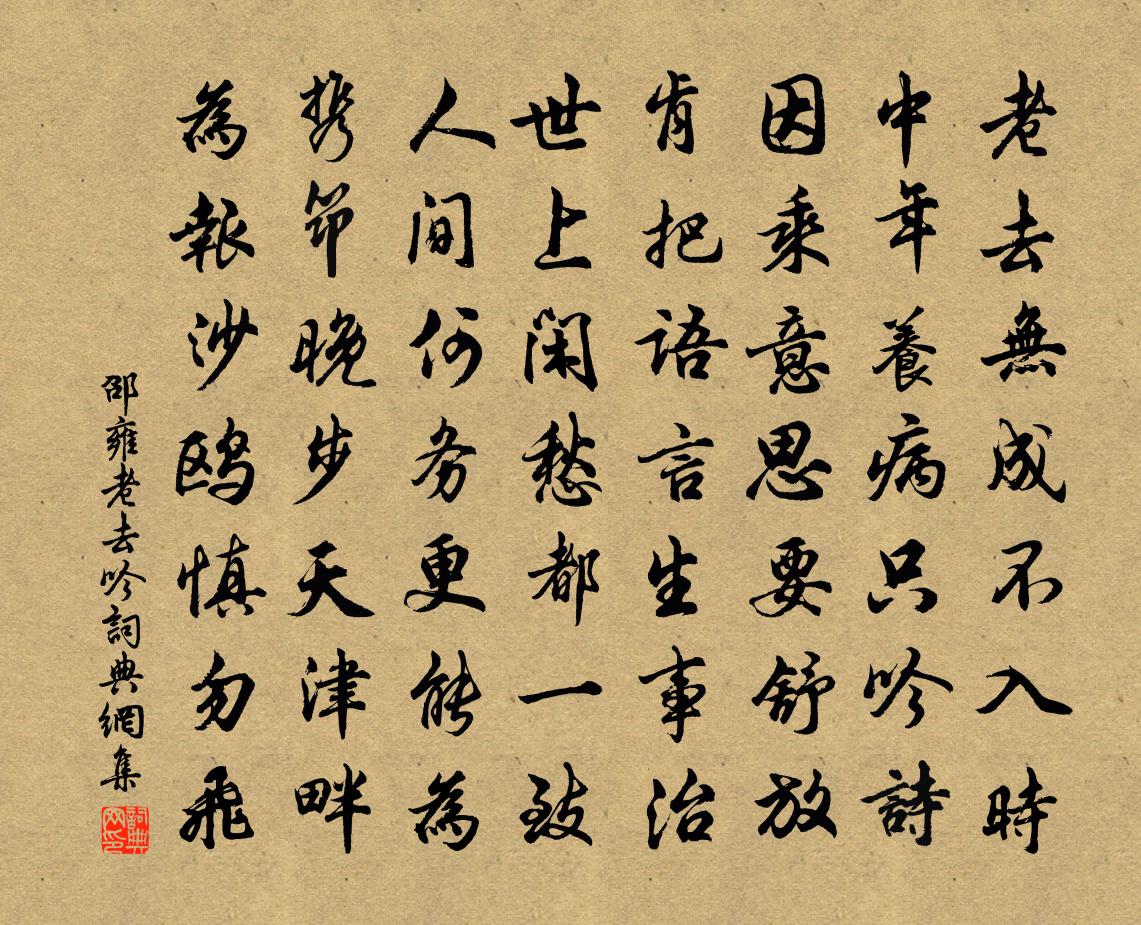 老去無成不入時
中年養病只吟詩
因乘意思要舒放
肯把語言生事治
世上閑愁都一致
人間何务更能為
携筇晚步天津畔
為報沙鸥慎勿飛
邵雍老去吟詞典網集
詞典网印